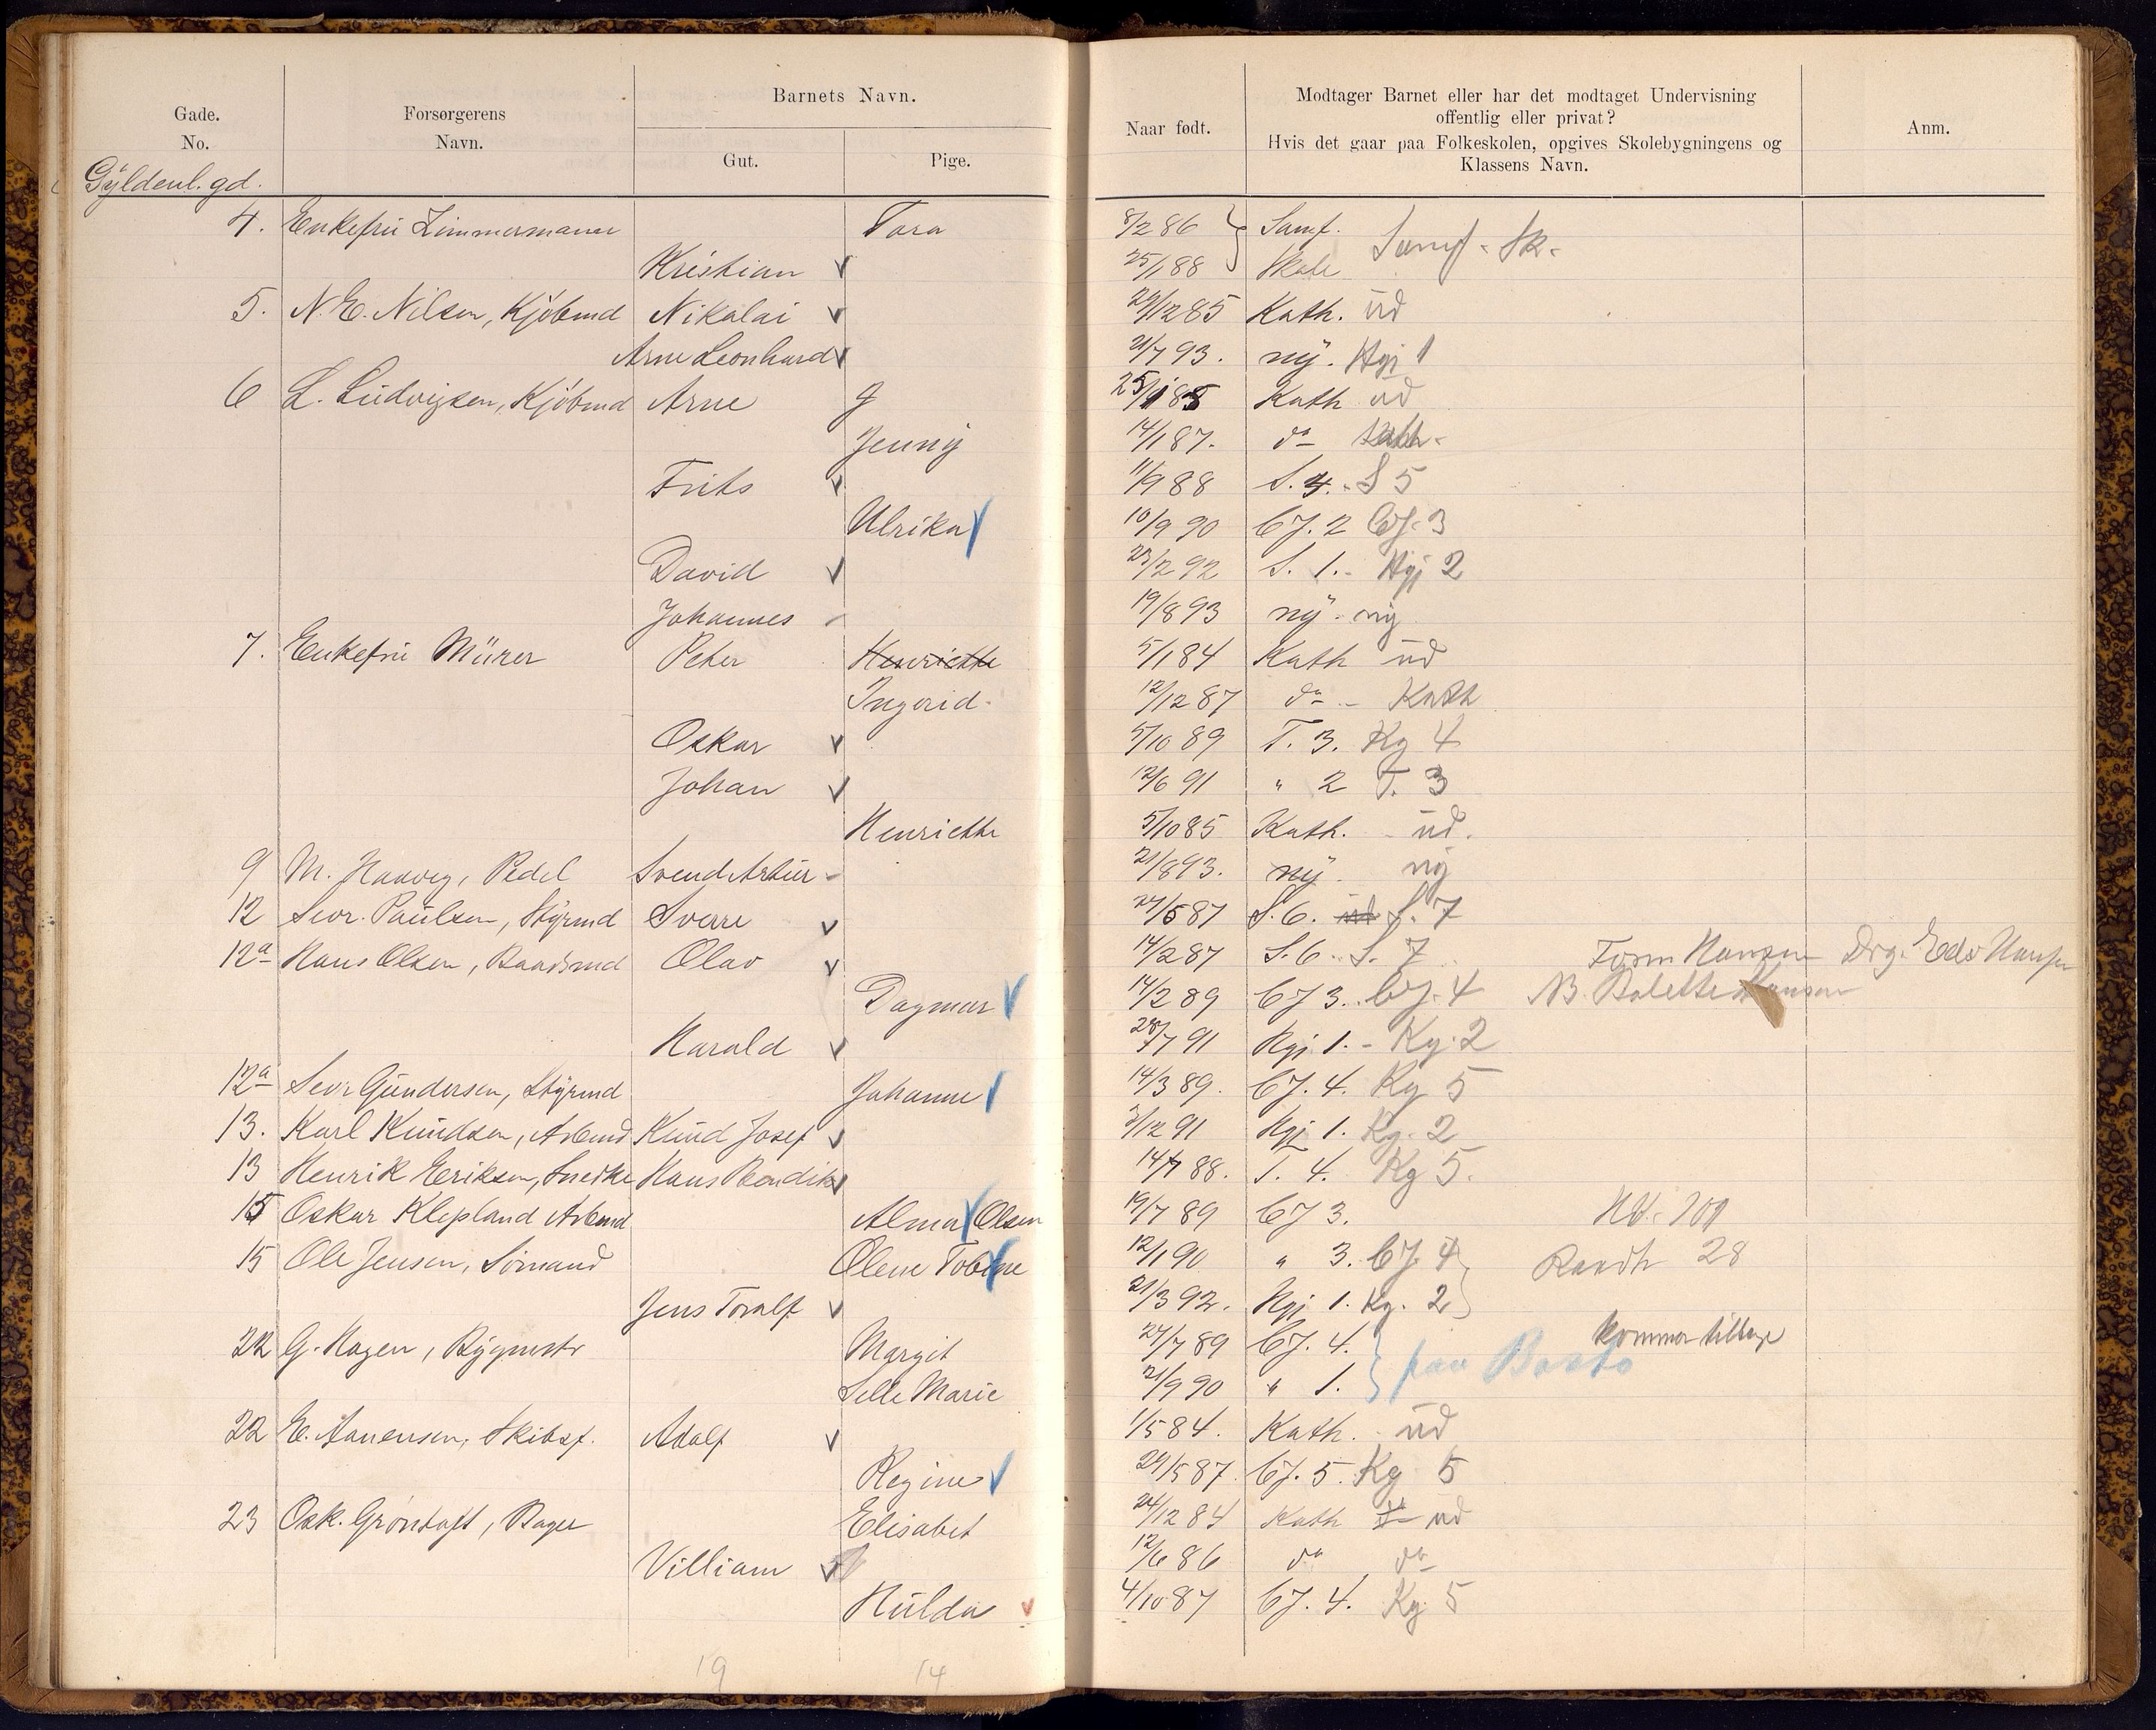 Gade.
No.
Forsørgerens
Navn.
Barnets Navn.
Gut.
Pige.
Naar født.
Modtager Barnet eller har det modtaget Undervisning
offentlig eller privat?
Hvis det gaar paa Folkeskolen, opgives Skolebygningens og
Klassens Navn.
Anm.
Gyldenl. gd.
4. Enkefru Zimmermann Tora 8/2 86 Samf.
Kristian 25/1 88 Skole Samf-Sk.
5. N. E. Nilsen, Kjøbmd Nikolai 29/12 85 Kath. ud
Arne Leonhard 21/7 93. ny. Hgj 1
6 L. Ludvigsen, Kjøbmd Arne 85 Kath ud
Jenny 14/1 87. do Kath.
Frits 11/9 88 S. 4. S 5
Ulrika 10/9 90 CJ. 2 CJ. 3
David 23/2 92 S. 1. Hgj 2
Johannes 19/8 93 ny. ny
7. Enkefru Mürer Peter Henriette 5/1 84 Kath ud
Ingerid 12/12 87 do Kath
Oskar 5/10 89 T. 3. Kg 4
Johan 12/6 91 " 2 T. 3
Henriette 5/10 85 Kath. ud.
9 M. Haaveg, Pedel Svend Artur 21/8 93. ny ny
12 Sevr. Paulsen, Styrmd Sverre 27/5 87 S. 6. ud S. 7
12a Hans Olsen, Baadsmd Olav 14/2 87 S. 6. S. 7 Torm Hansen Drg. Edv Hansen
Dagmar 14/2 89 CJ 3. CJ. 4 NB. Bolette Hansen
Harald 28/7 91 Hgj 1. - Kg. 2
12a Sevr Gundersen, Styrmd Johanne 14/3 89. CJ. 4. Kg 5
13. Karl Knudsen, Arbmd Knud Josef 3/12 91 Hgj 1. Kg. 2
13 Henrik Eriksen, Snedker Hans Bendik 14/7 88. S. 4. Kg 5.
15 Oskar Klepland Arbmd Alma Olsen 19/7 89 CJ 3.
15 Ole Jensen, Sømand Olene Tobine 12/1 90 " 3. CJ 4 Raadh 28
Jens Toralf 21/3 92. Hgj 1. Kg. 2
22 G. Hagen, Bygmstr Margit 27/7 89 CJ. 4. kommer tilbage
Selle Marie 21/9 90 " 1. paa Bastø
22 E. Aanensen, Skibsf. Adolf 1/5 84. Kath. ud
Regine 29/5 87. CJ. 5. Kg 5
23 Osk. Grøntoft, Bager Elisabet 24/12 84 Kath ud
Villiam 12/6 86 do do
Hulda 4/10 87 CJ. 4. Kg 5
19 14